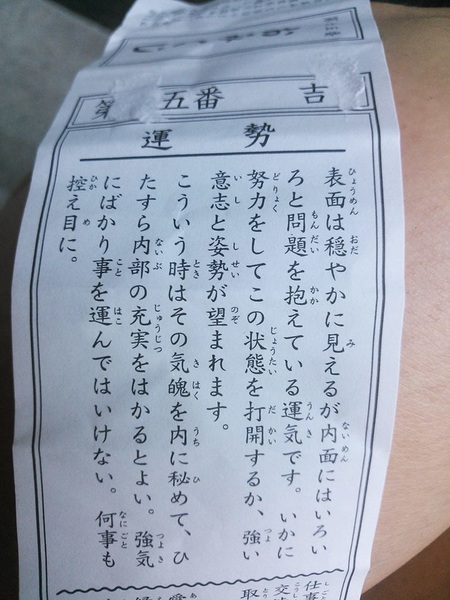 おみくじ
第五番 吉
運勢
表面は穏やかに見えるが内面にはいろい
ろと問題を抱えている運気です。いかに
努力をしてこの状態を打開するか、強い
意志と姿勢が望まれます。
こういう時はその気魄を内に秘めて、ひ
たすら内部の充実をはかるとよい。強気
にばかり事を運んではいけない。何事も
控え目に。